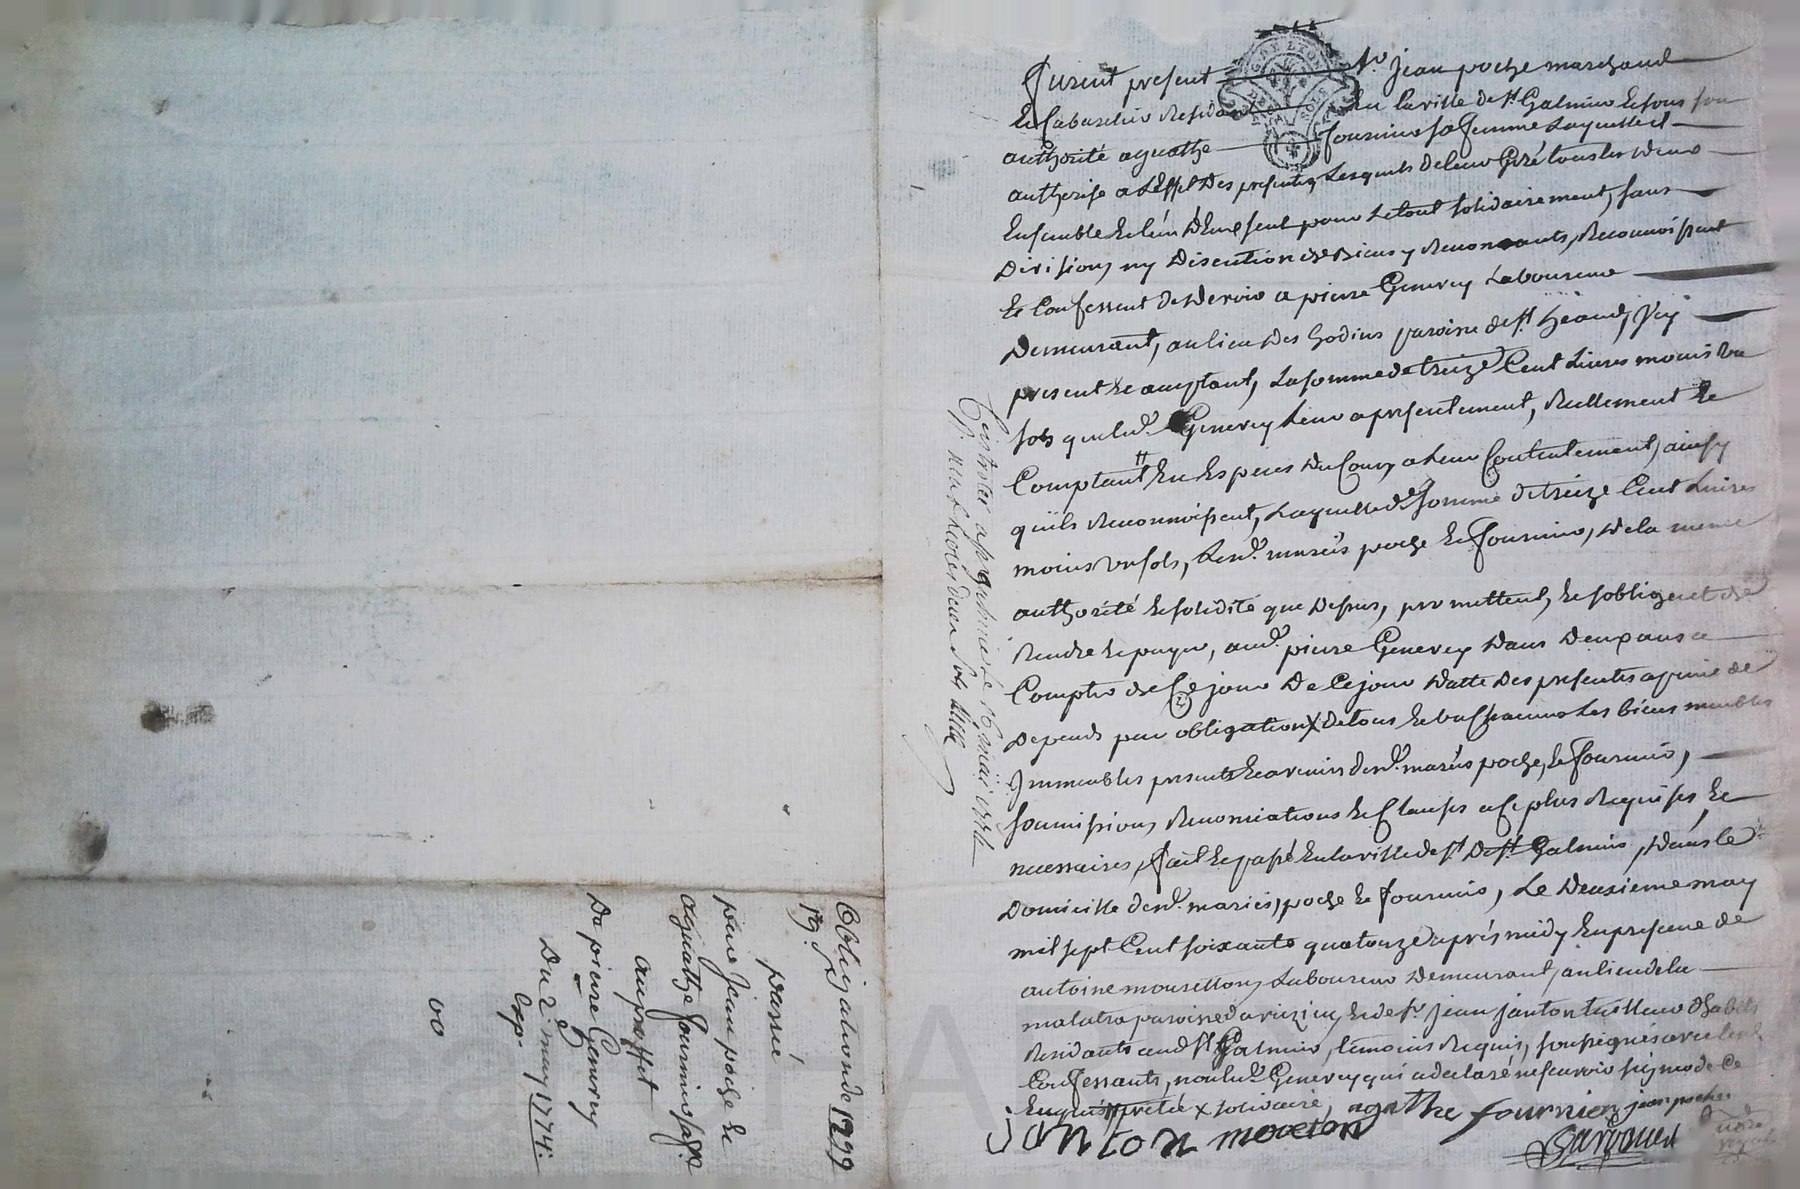 furent present sr. jean poche marchand
et Cabaretier Residant en la ville de st Galmier et sous son
authorité aguathe fournier sa femme Laquelle il
authorise a L'effet des presentes Lesquels de leur Gré tous les deux
Ensemble et l'un d'Eux seul pour Le tout solidairement, sans
Division ny Discution de Biens y Renonçants, Reconnoissent
et Confessent de devoir a pierre Generey Laboureur
Demeurant, au lieu des hodins paroisse de st heand, Icy
present et acceptant, La somme de treize Cent Livres moins un
sols que led. Generey Leur a presentement, Reellement et
Comptant En Especes du Cours a Leur Contentement, ainsy
qu'ils Reconnoissent, Laquelle de somme de treize Cent Livres
moins un sols, Lesd. mariés poche et fournier, de la meme
authorité et solidité que dessus, promettent, et s'obligent de
Rendre et payer, aud. pierre Generey dans Deux ans a
Compter de Ce jour De Ce jour datte des presentes a peine de
Depends par obligation x de tous et un chacuns Les biens meubles
Immeubles presents et avenirs desd. mariés poche, et fournier,
soumissions Renonciations et Clauses a Ce plus Requises et
necessaires, fait et passé En la ville de st De st Galmier, dans le
Domicille desd. mariés, poche et fournier, Le Deuxieme may
mil sept Cent soixante quatorze après midy En presence de
antoine mouretton Laboureur Demeurant, au lieu de la
paroisse et de sr. jean janton tailleur d'habits
Residants aud. st Galmier, temoins Requis, soussignés avec les
Confessants, non led. Generey qui a declaré ne scavoir signer de Ce
Enquis x solidaire, agathe fournier jean poche
janton moreton
Obligation de 1299
19 s.
passée
par Jean poche et
aguatthe fournier sa fe.
au proffit
De pierre Generey
Du 2e may 1774.
Exp.
00